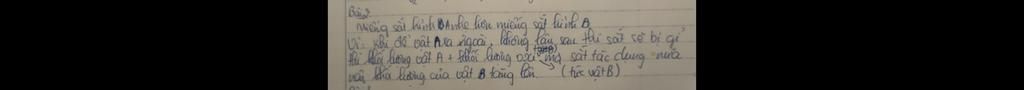 Bài 2
Miếng sắt hình A nhẹ hơn miếng sắt hình B
Vì khi để vật A ra ngoài, không lâu sau thì sắt sẽ bị gỉ
thì khối lượng vật A + khối lượng oxi mà sắt tác dụng nữa
nên khối lượng của vật B tăng lên. (tức vật B)